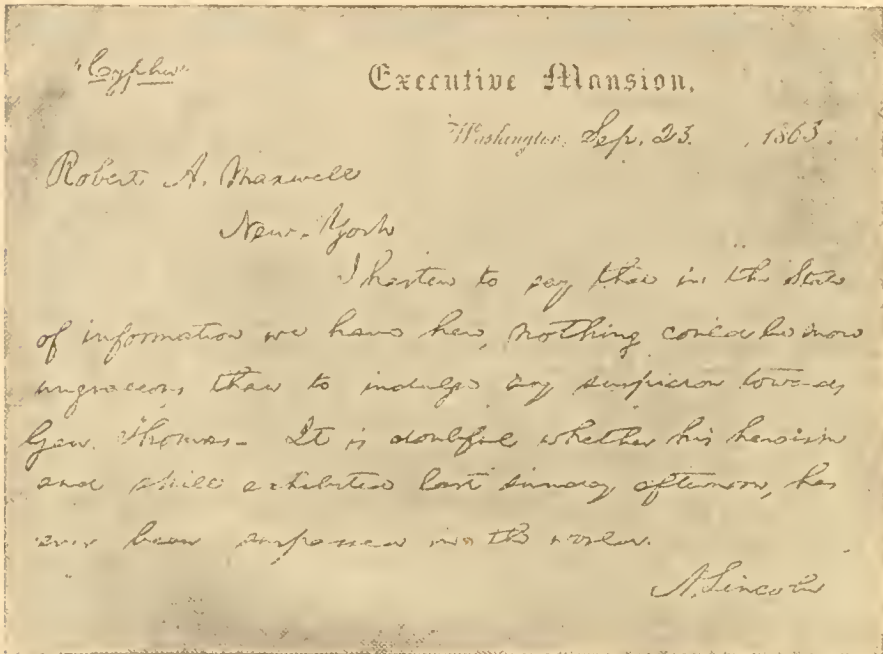 "Cypher"
Executive Mansion,
Washington, Sep. 23. , 1863.
Robert A. Maxwell
New-York
I hasten to say that in the State
of information we have here, nothing could be more
ungracious than to indulge any suspicion towards
Gen. Thomas- It is doubtful whether his heroism
and skill exhibited last sunday afternoon, has
ever been surpassed in the world.
A. Lincoln